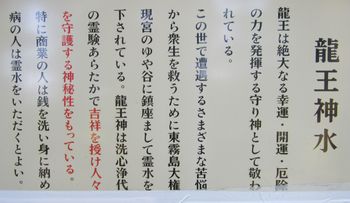 龍王神水
龍王は絶大なる幸運・開運・厄除
の力を発揮する守り神として敬わ
れている。
この世で遭遇するさまざまな苦悩
から衆生を救うために東霧島大権
現宮のゆや谷に鎮座まして霊水を
下されている。龍王神は洗心浄代
の霊験あらたかで吉祥を授け人々
を守護する神秘性をもっている。
特に商業の人は銭を洗い身に納め
病の人は霊水をいただくとよい。